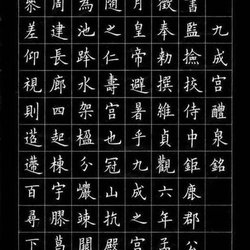 九成宮醴泉銘
書監撿挍侍中鉅鹿郡公
徵奉勑撰維貞觀六年孟
月皇帝避暑乎九成之宮
隨之仁壽宮也冠山抗殿
為池跨水架楹分巖竦闕
周建長廊四起棟宇膠葛
參差仰視則迢遰百尋下